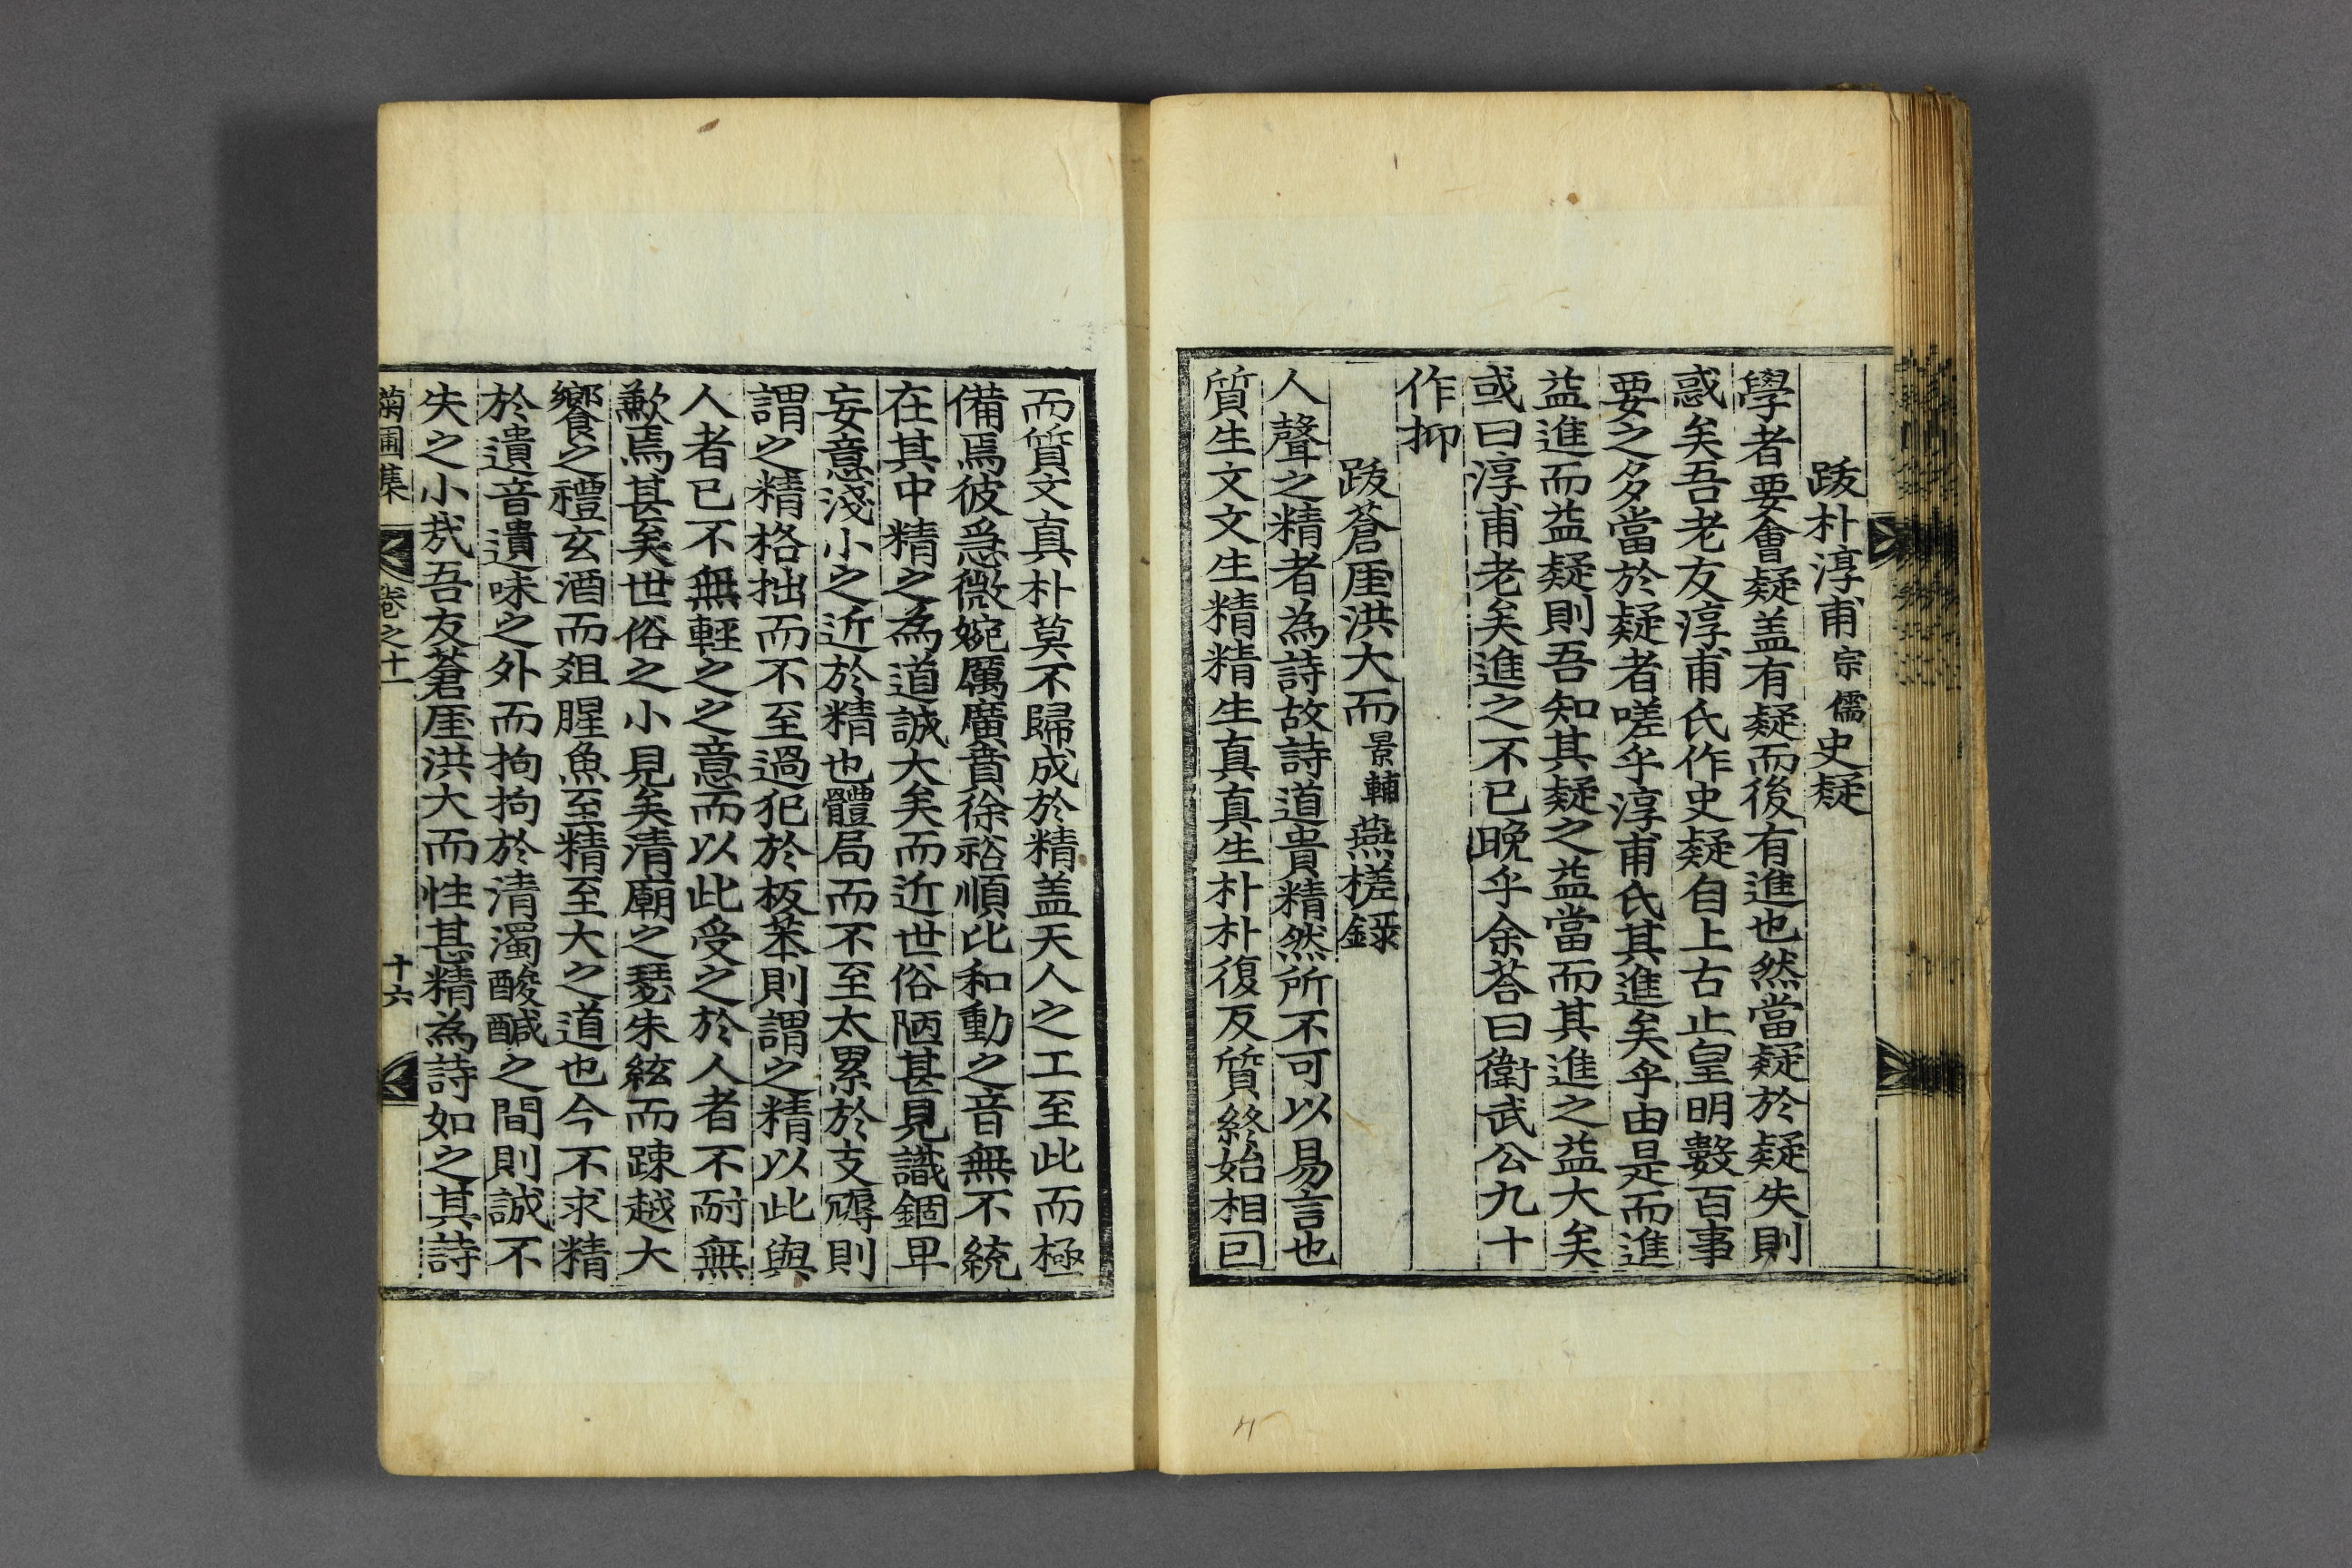 跋朴淳甫宗儒史疑
學者要會疑盖有疑而後有進也然當疑於疑失則
惑矣吾老友淳甫氏作史疑自上古止皇明數百事
要之多當於疑者嗟乎淳甫氏其進矣乎由是而進
益進而益疑則吾知其疑之益當而其進之益大矣
或曰淳甫老矣進之不已晚乎余荅曰衛武公九十
作抑
跋蒼厓洪大而景輔燕槎錄
人聲之精者為詩故詩道貴精然所不可以易言也
質生文文生精精生真真生朴朴復反質終始相回
而質文真朴莫不歸成於精盖天人之工至此而極
備焉彼急微婉厲廣賁徐裕順比和動之音無不統
在其中精之為道誠大矣而近世俗陋甚見識錮卑
妄意淺小之近於精也體局而不至太累於支䙡則
謂之精格拙而不至過犯於板苯則謂之精以此與
人者已不無輕之之意而以此受之於人者不耐無
歉焉甚矣世俗之小見矣清廟之瑟朱絃而踈越大
饗之禮玄酒而俎腥魚至精至大之道也今不求精
於遺音遺味之外而拘拘於清濁酸醎之間則誠不
失之小㢤吾友蒼厓洪大而性甚精為詩如之其詩
菊圃集 卷之十一 十六